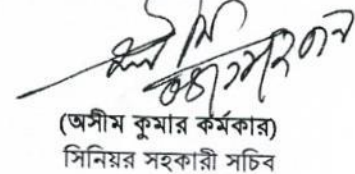 (অসীম কুমার কর্মকার)
সিনিয়র সহকারী সচিব